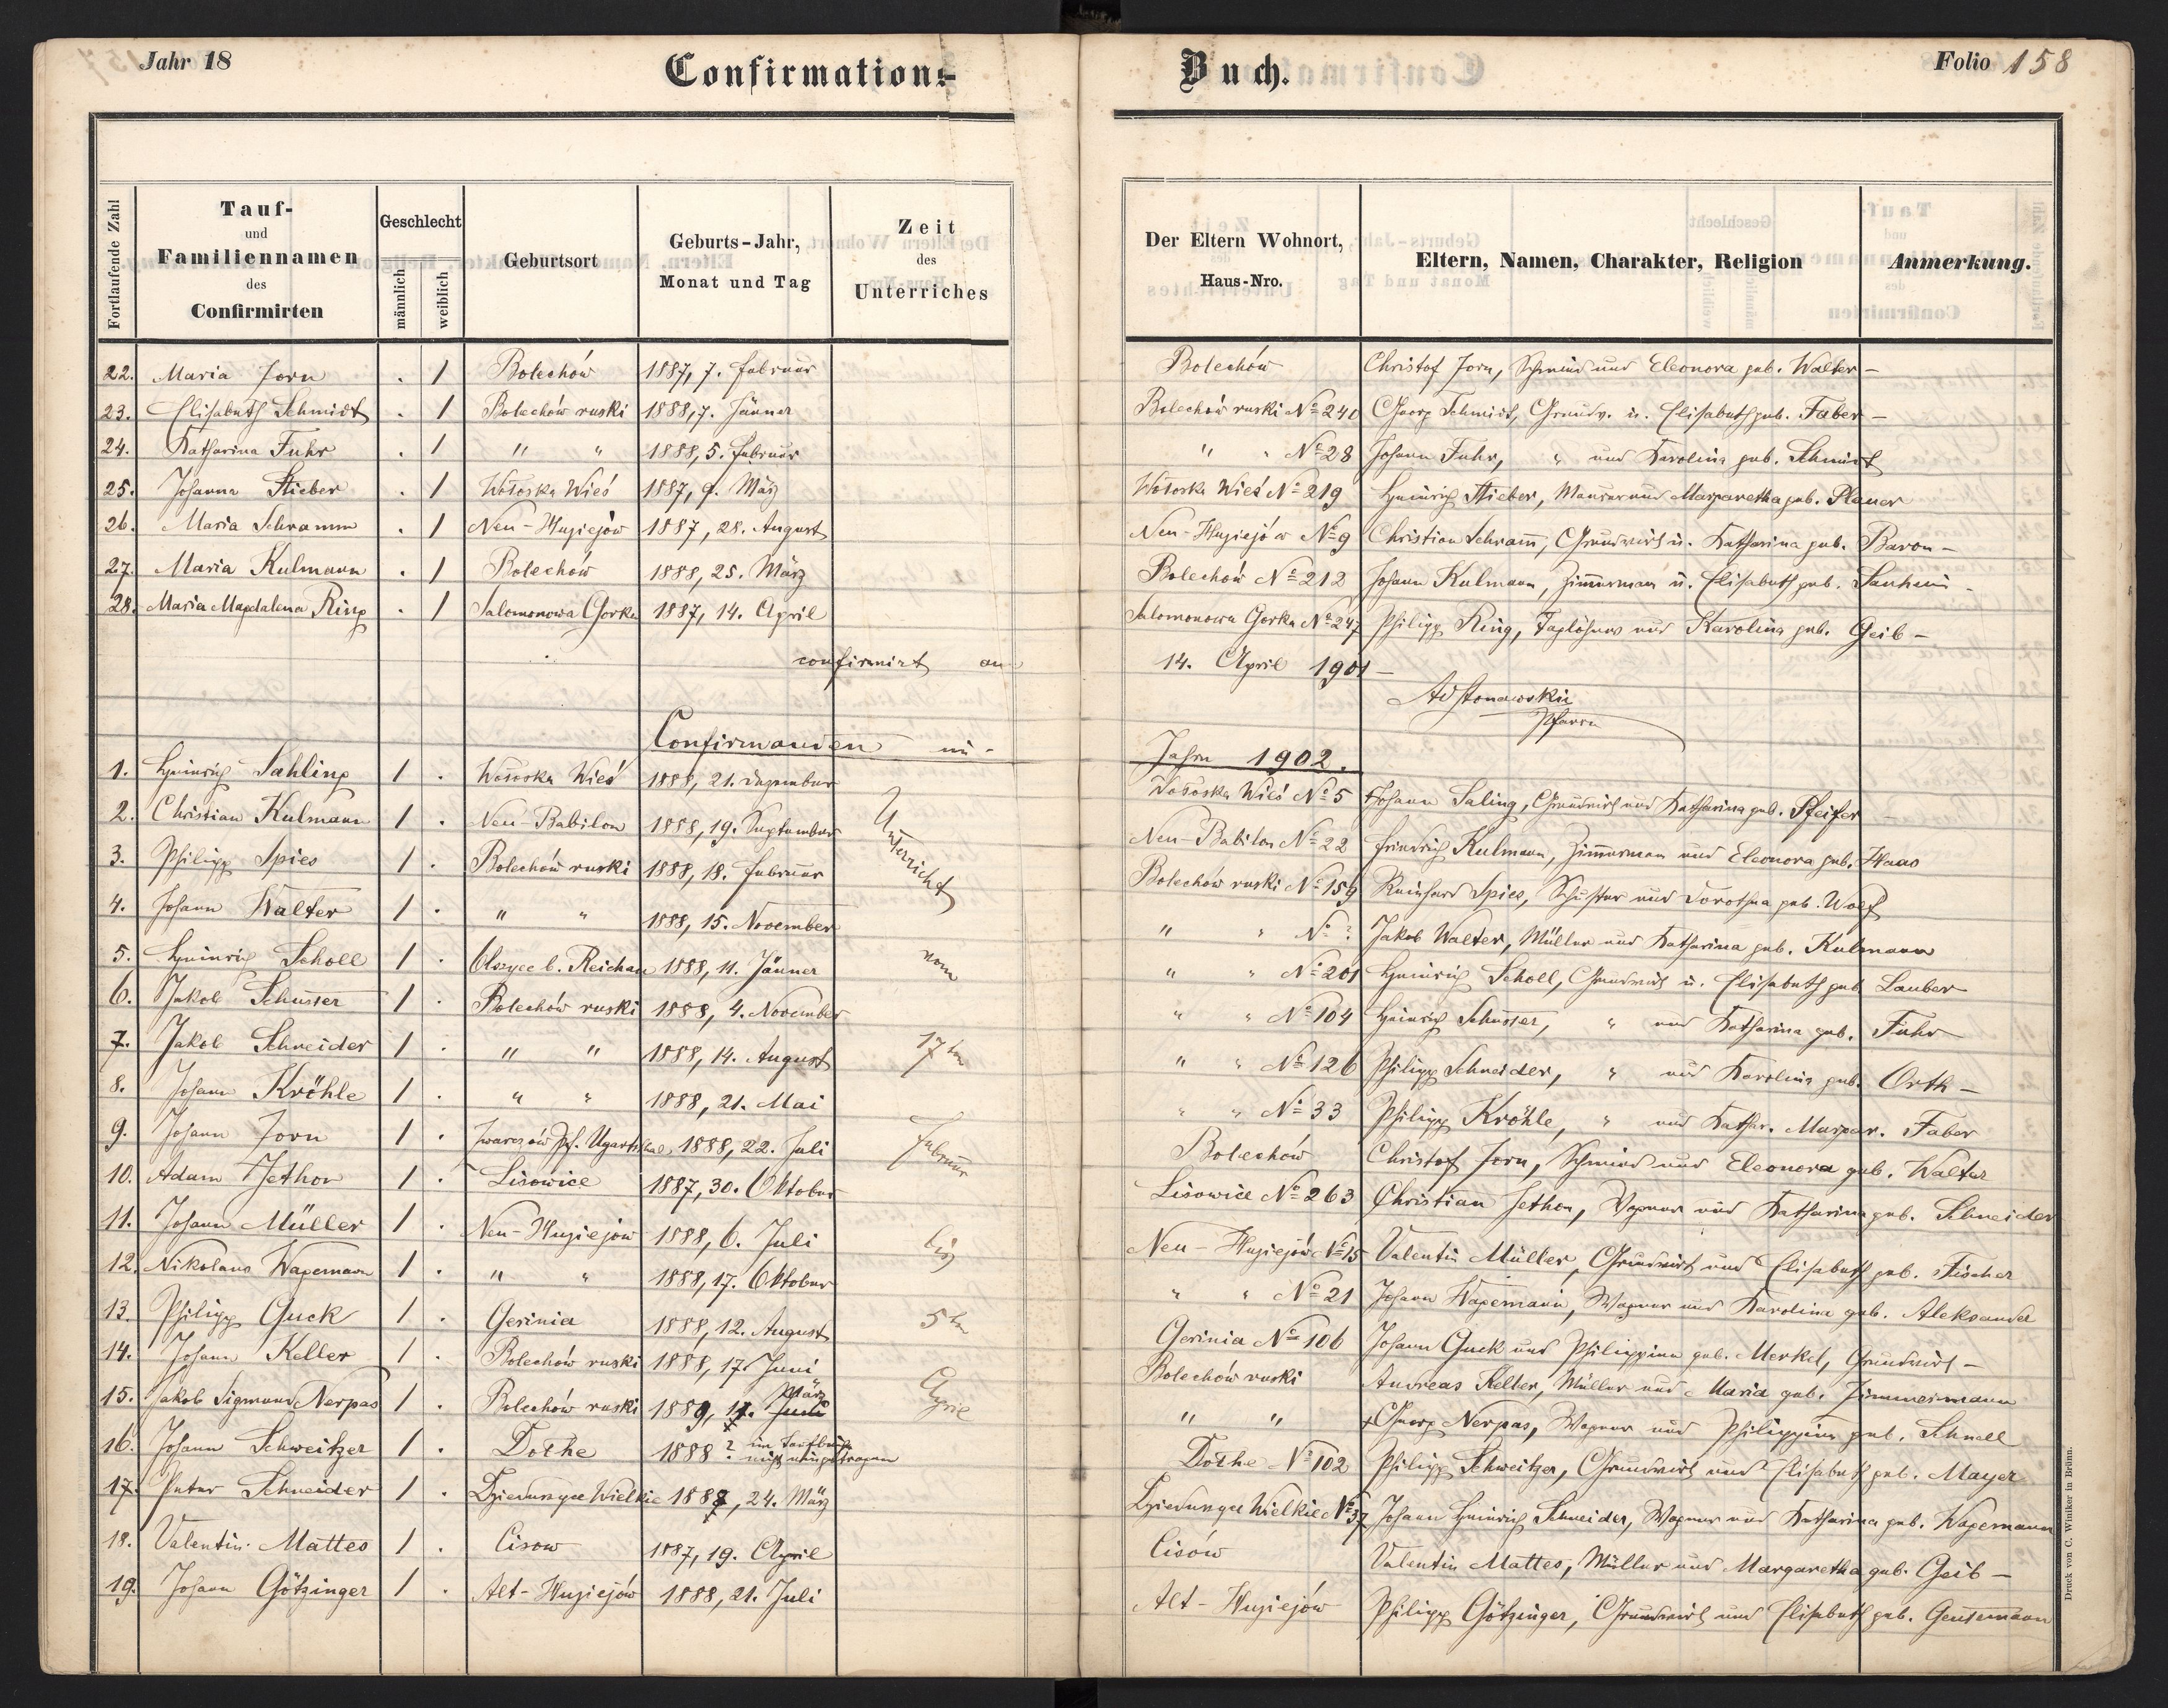 Jahr 18 Confirmations- Buch. Folio 158
Fortlaufende Zahl
Tauf- und Familiennamen des Confirmirten
Geschlecht
männlich
weiblich
Geburtsort
Geburts-Jahr, Monat und Tag
Zeit des Unterriches
Der Eltern Wohnort, Haus-Nro.
Eltern, Namen, Charakter, Religion
Anmerkung.
22. Maria Jorn . 1 Bolechów 1887, 7. Februar Bolechów Christof Jorn, Schmied und Eleonora geb. Walter –
23. Elisabeth Schmidt . 1 Bolechów ruski 1888, 7. Jänner Bolechów ruski No 240 Georg Schmidt, Grundw. u. Elisabeth geb. Faber –
24. Katharina Fuhr . 1 " " 1888, 5. Februar " " No 28 Johann Fuhr, " und Karolina geb. Schmidt
25. Johanna Stieber . 1 Wołoska Wieś 1887, 9. März Wołoska Wieś No 219 Heinrich Stieber, Maurer und Margaretha geb. Plauer
26. Maria Schramm . 1 Neu-Hujziejów 1887, 28. August Neu-Hujziejów No 9 Christian Schram̄, Grundwirth u. Katharina geb. Baron –
27. Maria Kulmann . 1 Bolechów 1888, 25. März Bolechów No 212 Johann Kulmann, Zim̄erman u. Elisabeth geb.
28. Maria Magdalena Ring . 1 Salomonowa Gorka 1887, 14. April Salomonowa Gorka No 247 Philipp Ring, Taglöhner und Karolina geb. Geib –
confirmirt am 14. April 1901 –
Pfarrer
Confirmanden im Jahre 1902.
1. Heinrich Sahling 1 . Wołoska Wieś 1888, 21. Dezember Wołoska Wieś No 5 Johann Saling, Grundwirth und Katharina geb. Pfeifer –
2. Christian Kulmann 1 . Neu-Babilon 1888, 19. September Unterricht Neu-Babilon No 22 Friedrich Kulmann, Zim̄erman und Eleonora geb. Haas
3. Philipp Spies 1 . Bolechów ruski 1888, 18. Februar Bolechów ruski No 159 Reinhard Spies, Schuster und Dorothea geb. Wolf
4. Johann Walter 1 . " " 1888, 15. November " " No ? Jakob Walter, Müller und Katharina geb. Kulmann
5. Heinrich Scholl 1 . b. Reichau 1888, 11. Jänner vom " " No 201 Heinrich Scholl, Grundwirth u. Elisabeth geb. Lauber
6. Jakob Schusser 1 . Bolechów ruski 1888, 4. November " " No 104 Heinrich Schusser, " und Katharina geb. Fuhr
7. Jakob Schneider 1 . " " 1888, 14. August 17ten " " No 126 Philipp Schneider, " und Karolina geb. Orth –
8. Johann Kröhle 1 . " " 1888, 21. Mai " " No 33 Philipp Kröhle, " und Kathar. Margar. Faber
9. Johann Jorn 1 . 1888, 22. Juli Februar Bolechów Christof Jorn, Schmied und Eleonora geb. Walter
10. Adam Jethon 1 . Lisowice 1887, 30. Oktober Lisowice No 263 Christian Jethon, Wagner und Katharina geb. Schneider
11. Johann Müller 1 . Neu-Hujziejów 1888, 6. Juli bis Neu-Hujziejów No 15 Valentin Müller, Grundwirth und Elisabeth geb. Fischer
12. Nikolaus Wagemann 1 . " " 1888, 17. Oktober " " No 21 Johann Wagemann, Wagner und Karolina geb. Aleksander
13. Philipp Guck 1 . Gerinia 1888, 12. August 5ten Gerinia No 106 Johann Guck und Philippina geb. Merkel, Grundwirth –
14. Johann Keller 1 . Bolechów ruski 1888, 17. Juni April Bolechów ruski Andreas Keller, Müller und Maria geb. Zimmermann
15. Jakob Sigmund Nerpas 1 . Bolechów ruski 1889, 17. Juli März " " †Georg Nerpas, Wagner und Philippina geb. Schnell
16. Johann Schweitzer 1 . Dołhe 1888 ? im Taufbuch nicht eingetragen Dołhe No 102 Philipp Schweitzer, Grundwirth und Elisabeth geb. Mayer
17. Peter Schneider 1 . Dzieduszyce Wielkie 1887, 24. März Dzieduszyce Wielkie No 37 Johann Heinrich Schneider, Wagner und Katharina geb. Wagemann
18. Valentin Mattes 1 . Cisow 1887, 19. April Cisów Valentin Mattes, Müller und Margaretha geb. Geib –
19. Johann Götzinger 1 . Alt-Hujziejów 1888, 21. Juli Alt-Hujziejów Philipp Götzinger, Grundwirth und Elisabeth geb. Gensemann
Druck von C. Winiker in Brünn.